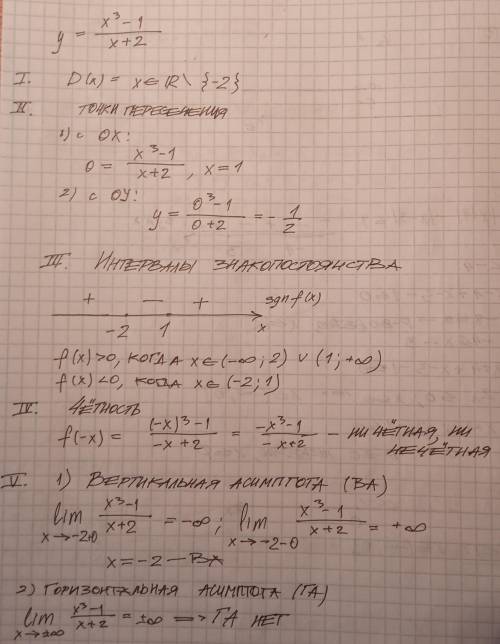 y = (x³ - 1)/(x + 2)
I. D(x) = x ∈ R \ {-2}
II. ТОЧКИ ПЕРЕСЕЧЕНИЯ
1) С OX:
0 = (x³ - 1)/(x + 2), x = 1
2) С OY:
y = (0³ - 1)/(0 + 2) = - 1/2
III. ИНТЕРВАЛЫ ЗНАКОПОСТОЯНСТВА
+ — + sgn f(x)
-2 1 x
f(x) > 0, КОГДА x ∈ (-∞; 2) ∪ (1; +∞)
f(x) < 0, КОГДА x ∈ (-2; 1)
IV. ЧЁТНОСТЬ
f(-x) = ((-x)³ - 1)/(-x + 2) = (-x³ - 1)/(-x + 2) - НИ ЧЁТНАЯ, НИ
НЕЧЁТНАЯ
V. 1) ВЕРТИКАЛЬНАЯ АСИМПТОТА (ВА)
lim x→-2+0 (x³ - 1)/(x + 2) = -∞; lim x→-2-0 (x³ - 1)/(x + 2) = +∞
x = -2 — ВА
2) ГОРИЗОНТАЛЬНАЯ АСИМПТОТА (ГА)
lim x→±∞ (x³ - 1)/(x + 2) = ±∞ => ГА НЕТ